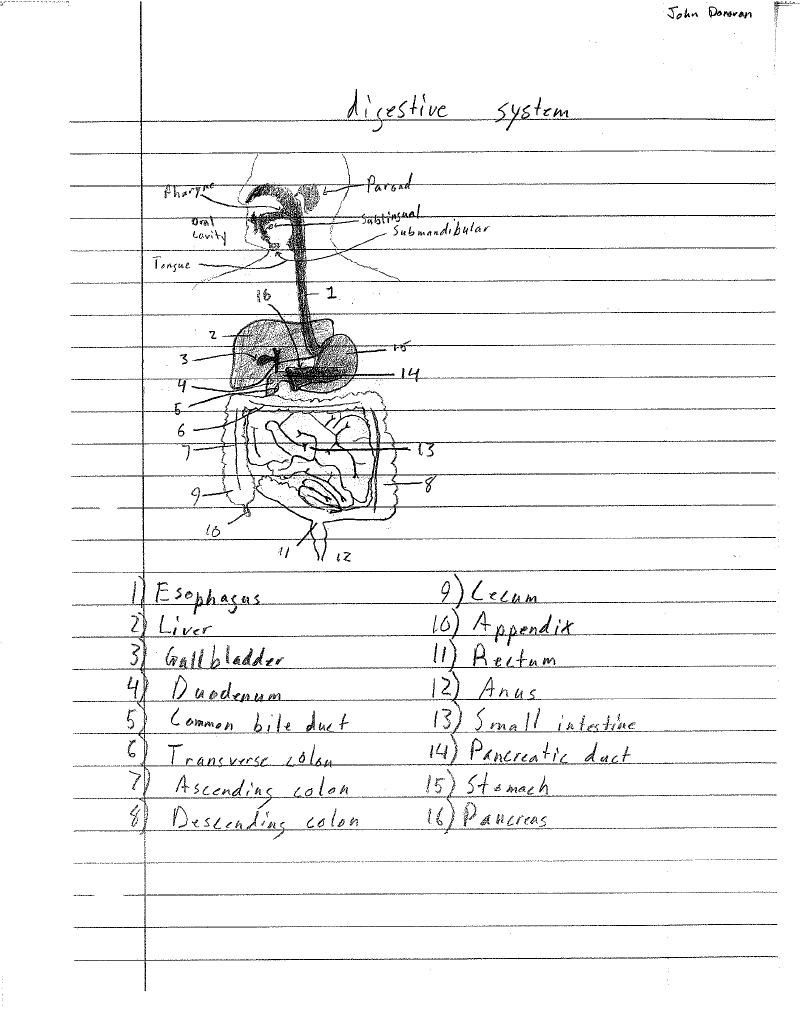 John Donovan
digestive system
Pharynx
Parotid
Oral
cavity
Sublingual
Submandibular
Tongue
16
1
2
3
15
4
14
5
6
7
13
8
9
10
11
12
1) Esophagus
2) Liver
3) Gallbladder
4) Duodenum
5) Common bile duct
6) Transverse colon
7) Ascending colon
8) Descending colon
9) Cecum
10) Appendix
11) Rectum
12) Anus
13) Small intestine
14) Pancreatic duct
15) Stomach
16) Pancreas